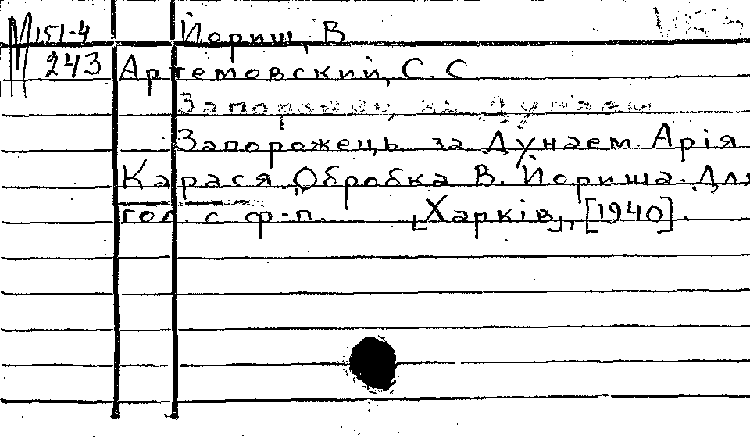 М 151-4 Йориш, В
243 Артемовский, С. С
Запорожец за Дунаем
Запорожець за Дунаем. Арія
Карася. Обробка В. Йориша. Для
гол. с ф-п. [Харків], [1940].